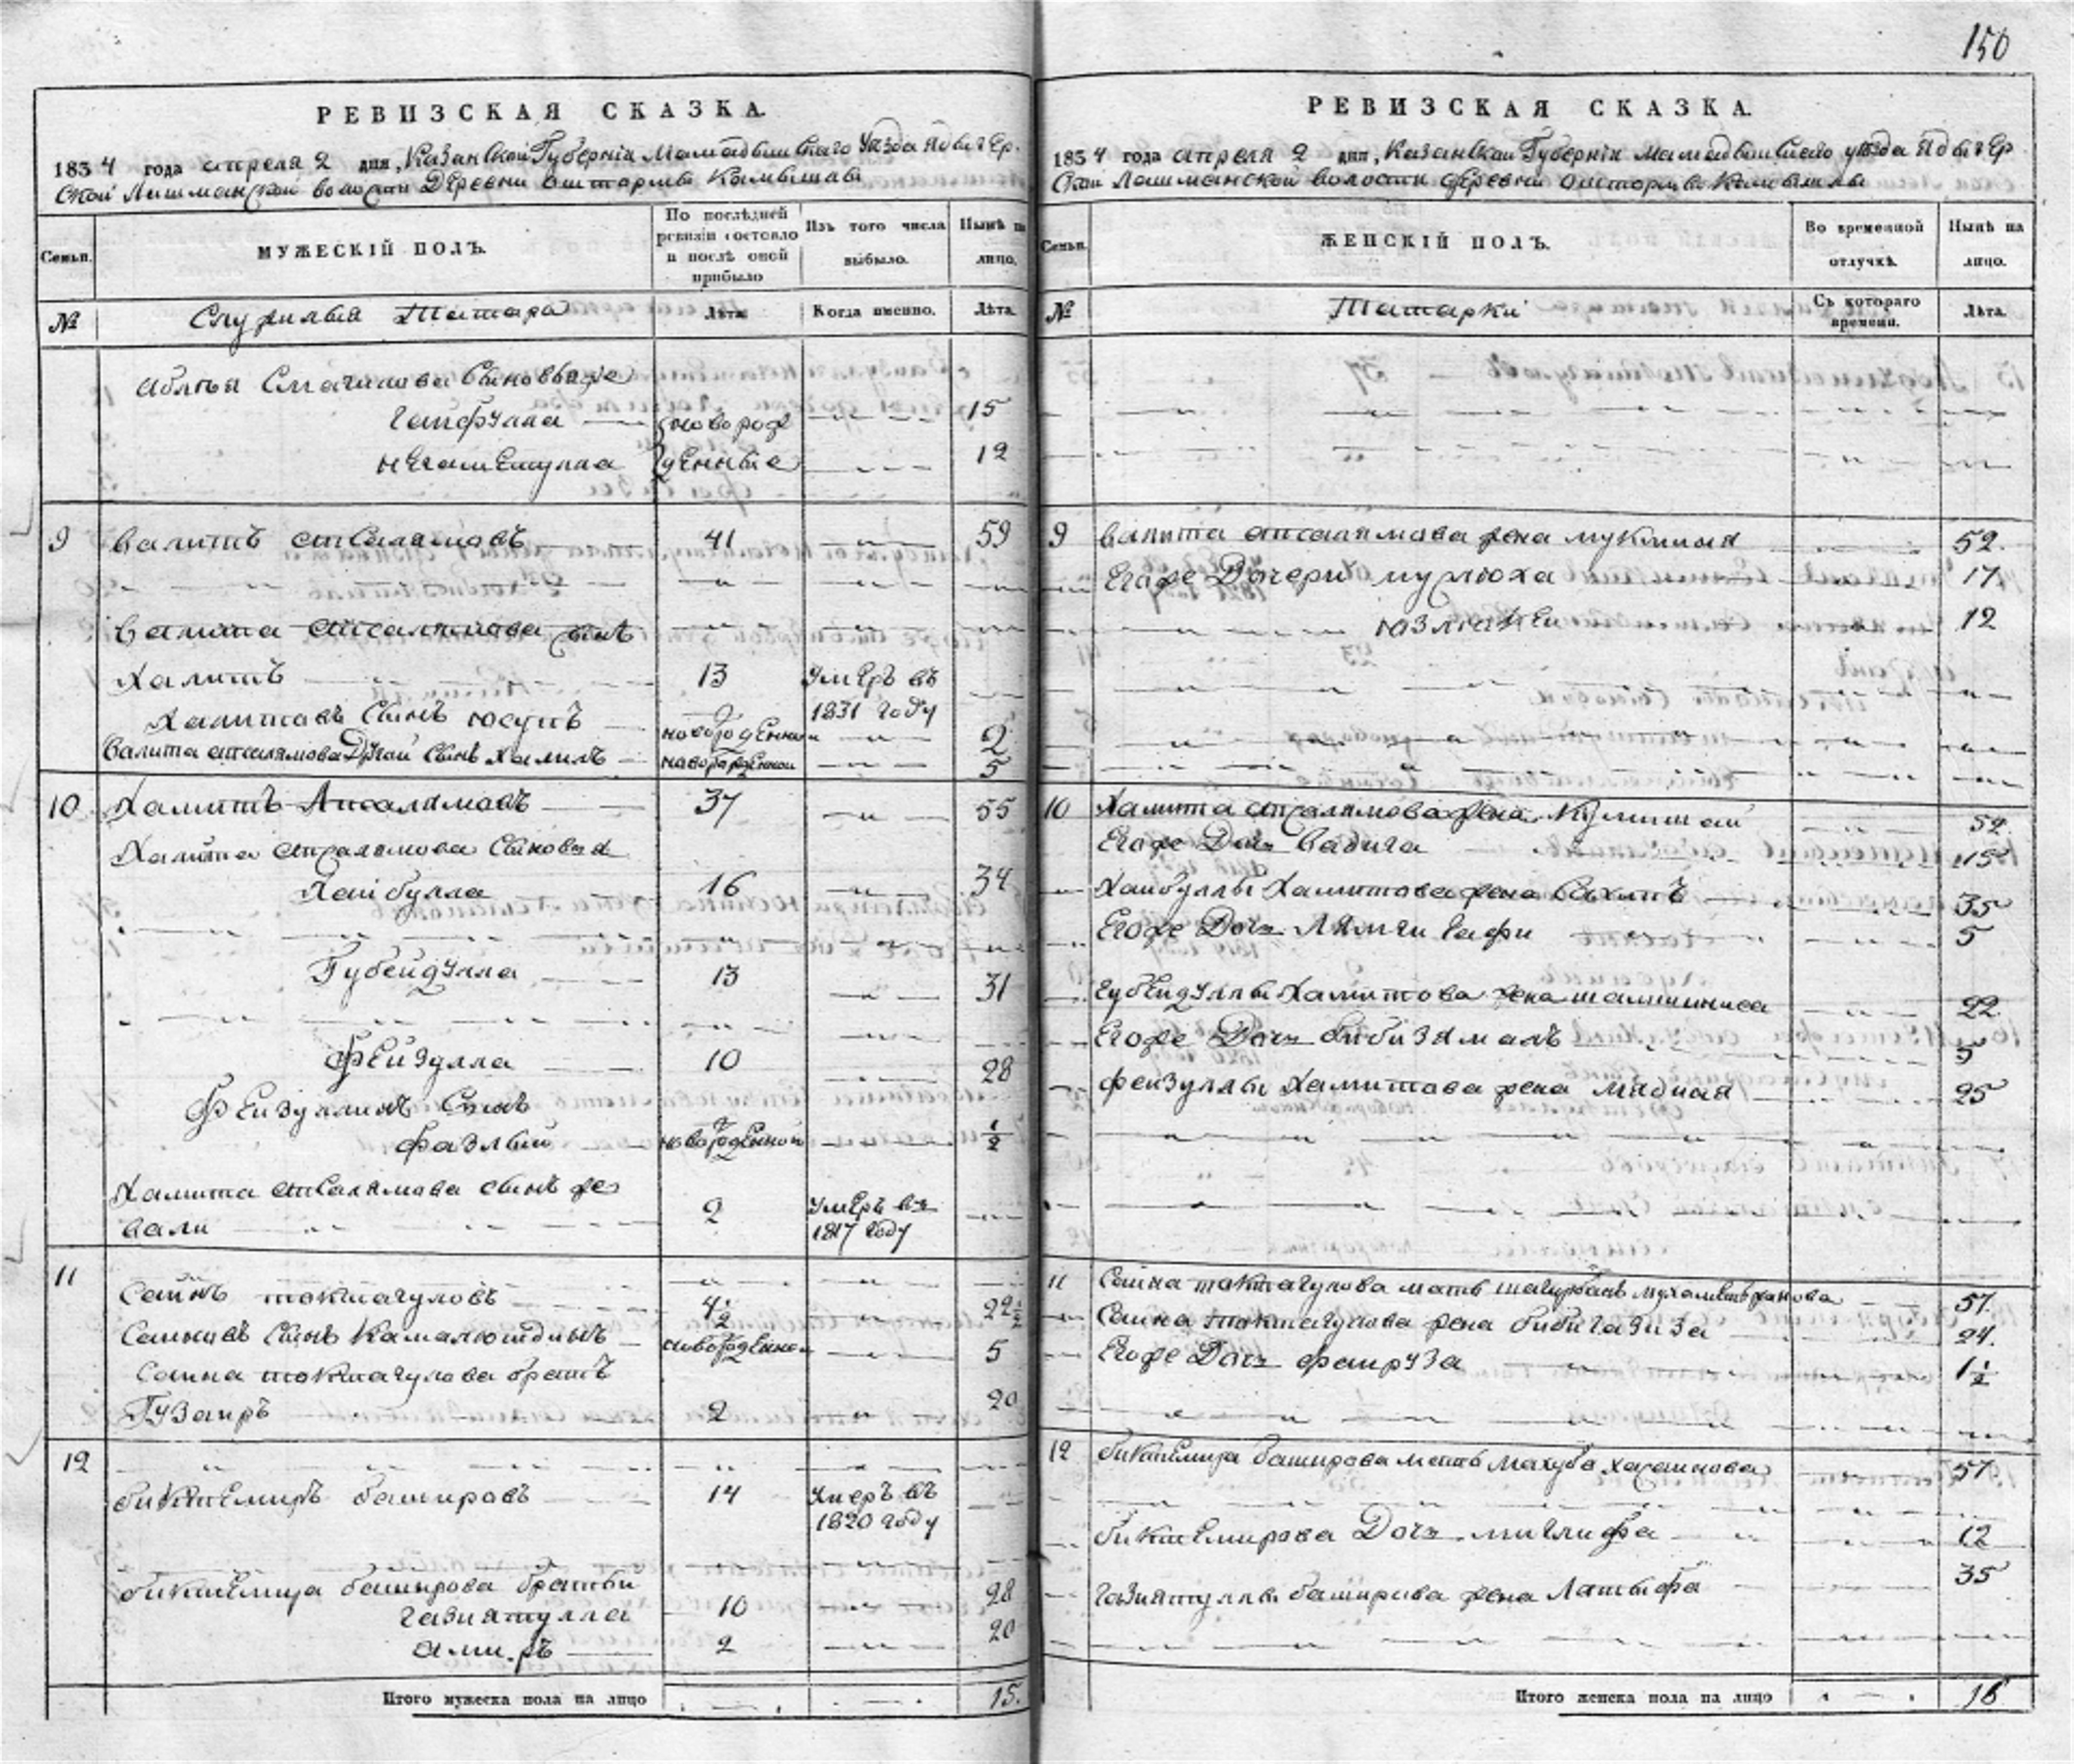 150
РЕВИЗСКАЯ СКАЗКА.
1834 года апреля 2 дня, Казанской Губернiи Мамадышскаго Уезда
ской Лашманской волости Деревни
Семьи.
МУЖЕСКIЙ ПОЛЪ.
По послѣдней ревизiи состояло и послѣ оной прибыло
Изъ того числа выбыло.
Нынѣ на лицо.
№
Служилыя Татара
Лѣта.
Когда именно.
Лѣта.
Смагилова Сыновья же
Гайфулла новорож 15
денные 12
9 Валитъ Апсалямовъ 41 59
Валита Апсалямова сынъ
Халитъ 13 Умеръ въ 1831 году
Халитовъ Сынъ Юсупъ новорожденной 2
Валита Апсалямова Другой Сынъ Халилъ новорожденной 5
10 Хамитъ Апсалямовъ 37 55
Хамита Апсалямова Сыновья
Хайбулла 16 34
Губейдулла 13 31
Фейзулла 10 28
Фейзуллинъ Сынъ
Фазлый новорожденной 1/2
Хамита Апсалямова сынъ же
Вали 2 Умеръ въ 1817 году
11
Саинъ Токтагуловъ 4 1/2 22 1/2
Саиновъ Сынъ Камалютдинъ новорожденной 5
Саина Токтагулова братъ
Гузаиръ 2 20
12
Биктемиръ Башировъ 14 Умеръ въ 1820 году
Биктемира Баширова братьи
Газиятулла 10 28
Амиръ 2 20
Итого мужеска пола на лицо 15.
РЕВИЗСКАЯ СКАЗКА.
1834 года апреля 2 дня, Казанской Губернiи Мамадышскаго уезда
ской Лашманской волости деревни
Семьи.
ЖЕНСКIЙ ПОЛЪ.
Во временной отлучкѣ.
Нынѣ на лицо.
№
Татарки
Съ котораго времени.
Лѣта.
9 Валита Апсалямова жена Мукминя 52.
Егоже Дочери 17
12
10 Хамита Апсалямова жена 52.
Егоже Дочь Вадига 15
Хайбуллы Хамитова жена 35
Егоже Дочь 5
Губейдуллы Хамитова жена 22
Егоже Дочь Бибизямалъ 5
Фейзуллы Хамитова жена 25
11 Саина Токтагулова мать 57.
Саина Токтагулова жена Бибигазиза 24.
Егоже Дочь Фаируза 1 1/2
12 Биктемира Баширова мать 57
Биктемирова Дочь 12
Газиятуллы Баширова жена Латыфа 35
Итого женска пола на лицо 16